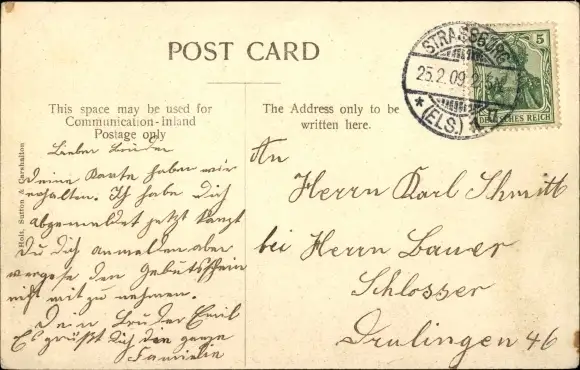 POST CARD
This space may be used for
Communication-Inland
Postage only
The Address only to be
written here.
Holt, Sutton & Carshalton
STRASSBURG
25.2.09.
* (ELS.)
5
DEUTSCHES REICH
Lieber Bruder
Deine Karte haben wir
erhalten. Ich habe Dich
abgemeldet jetzt kanst
Du Dich anmelden aber
vergese den Gebutsschein
nicht mit zu nehmen.
Dein Bruder Emil
Es grüßt Dich die ganze
Familie
An
Herrn Karl Schmitt
bei Herrn Bauer
Schlosser
Drulingen 46